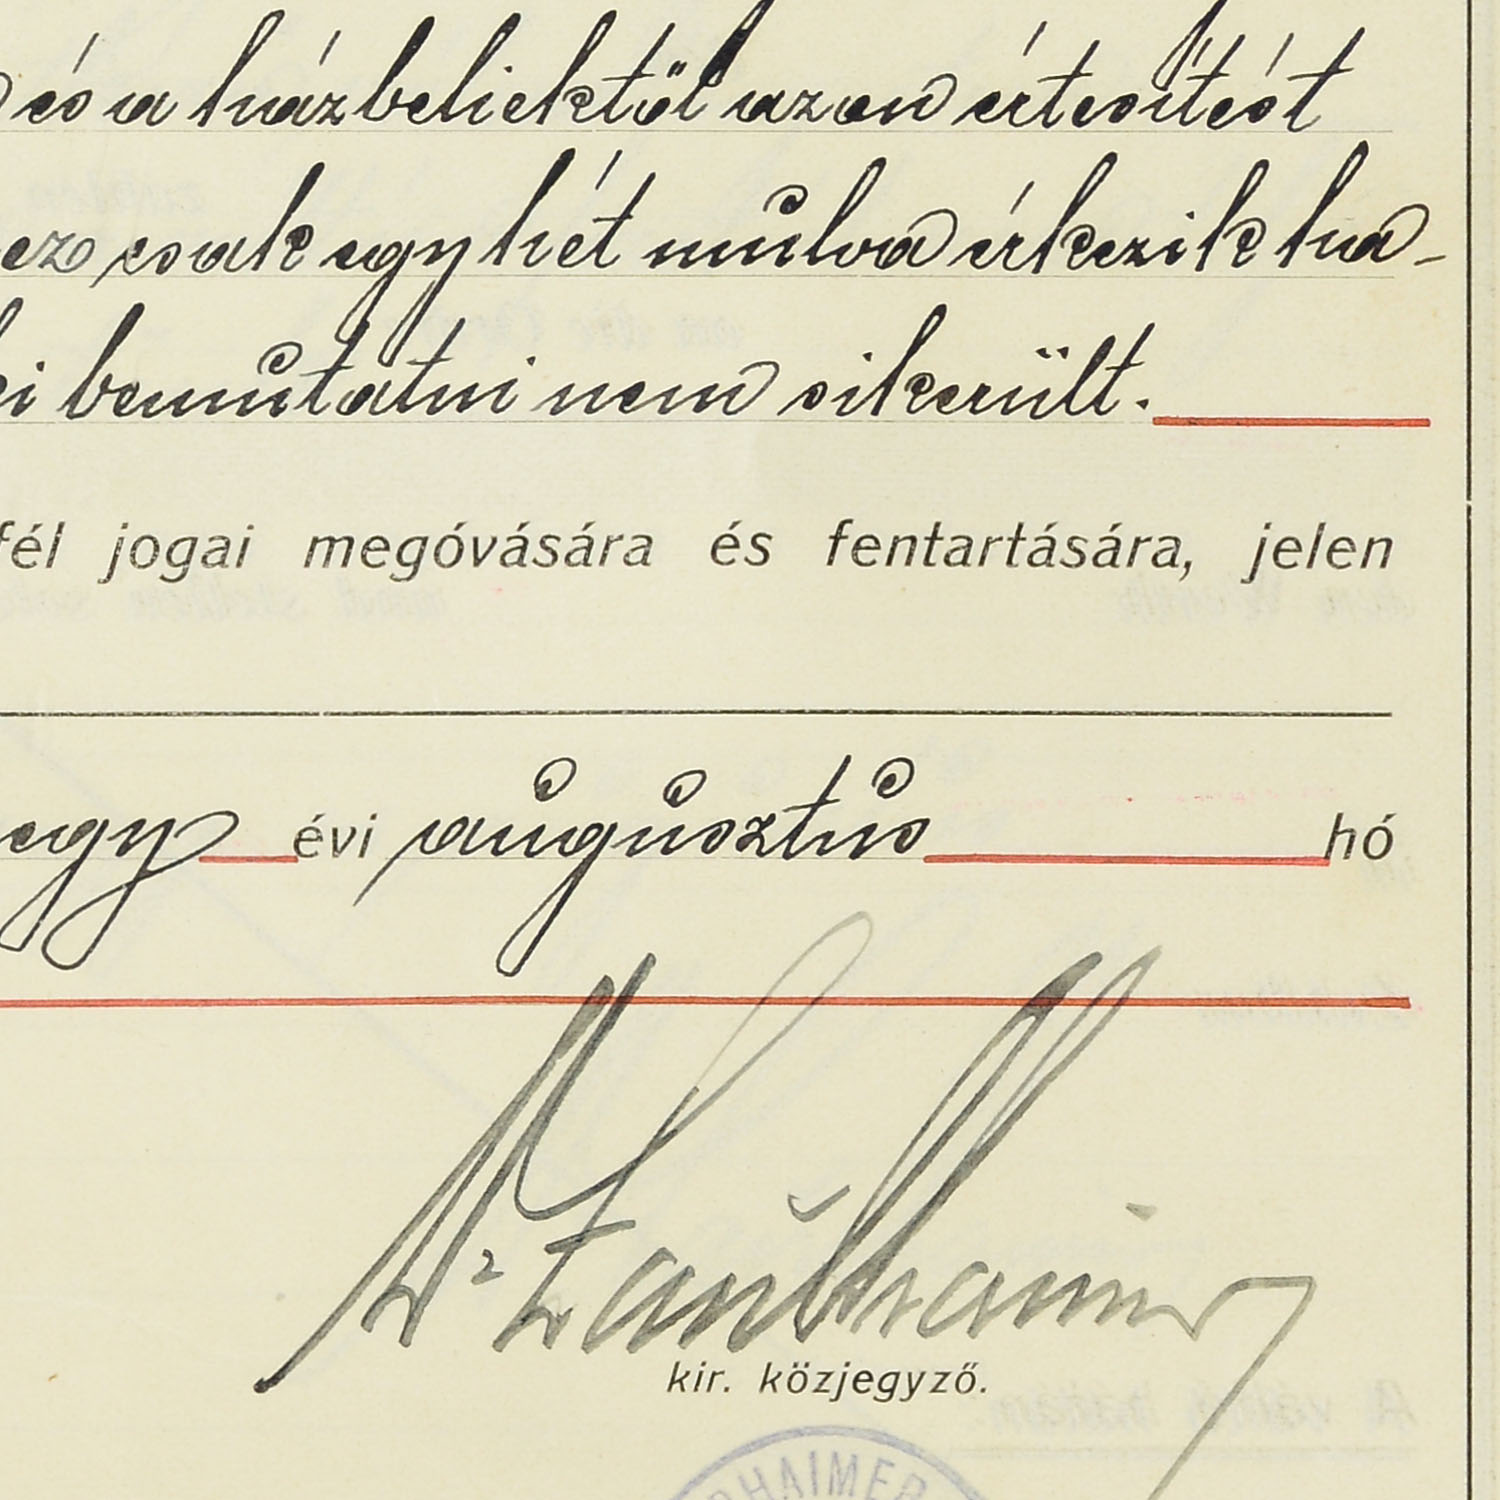 és a házbeliektől azon értesítést
ez csak egy hét mulva érkezik ha-
bemutatni nem sikerült.
fél jogai megóvására és fentartására, jelen
egy évi augusztus hó
Dr
kir. közjegyző.
HAIMER